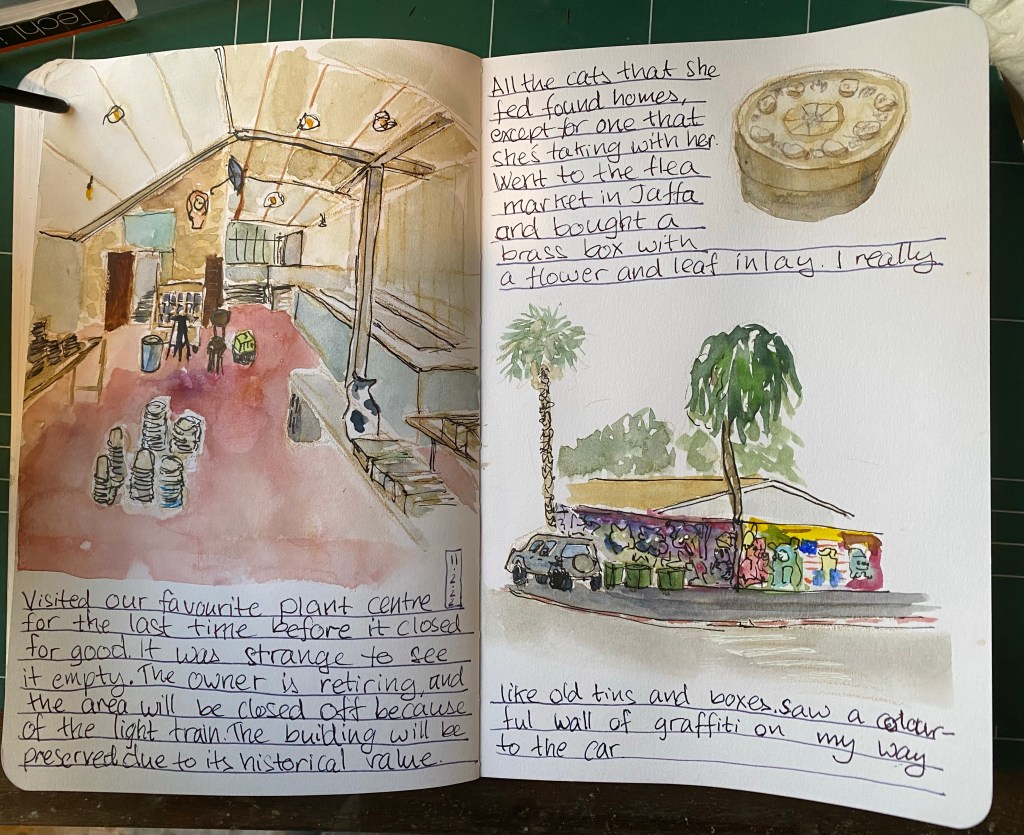 TechLi
11.2.22
Visited our favourite plant centre
for the last time before it closed
for good. It was strange to see
it empty. The owner is retiring, and
the area will be closed off because
of the light train. The building will be
preserved due to its historical value.
All the cats that she
fed found homes,
except for one that
she's taking with her.
Went to the flea
market in Jaffa
and bought a
brass box with
a flower and leaf inlay. I really
like old tins and boxes. Saw a colour-
ful wall of graffiti on my way
to the car